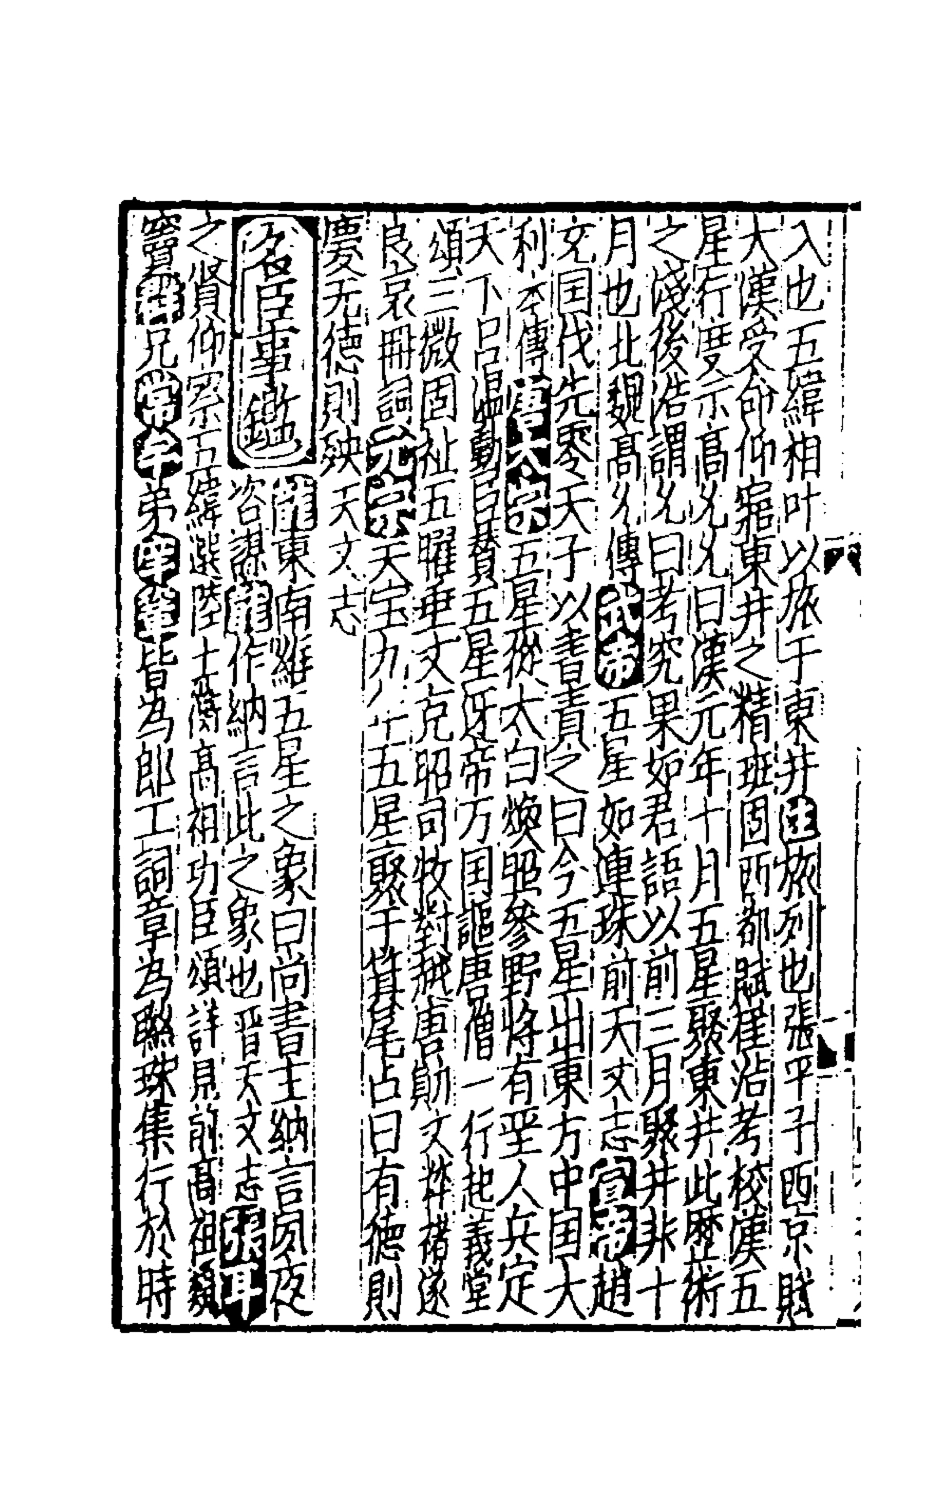 入也五緯相叶以旅于東井注旅列也張平子西京賦
大漢受命仰寤東井之精班固西都賦崔浩考校漢五
星行度示高允允曰漢元年十月五星聚東井此歷術
之淺後浩謂允曰考究果如君語以前三月聚井非十
月也北魏高允傳武帝五星如連珠前天文志宣帝趙
充囯伐先零天子以書責之曰今五星出東方中囯大
利本傳唐太宗五星從太白煥照參野将有聖人兵定
天下呂温勳臣賛五星牙帝万囯謳唐僧一行起義堂
頌三微固祉五曜垂文克昭司牧對越唐勛文粹禇遂
良哀冊詞元宗天宝九年五星聚于箕尾占曰有德則
慶无德則殃天文志
名臣事鑑
龍東南維五星之象曰尚書主納言夙夜
咨謀龍作納言此之象也晋天文志張耳
之賢仰察五緯選陸士衡高祖功臣頌詳見前高祖類
竇群兄常牟弟庠鞏皆為郎工詞章為聯珠集行於時